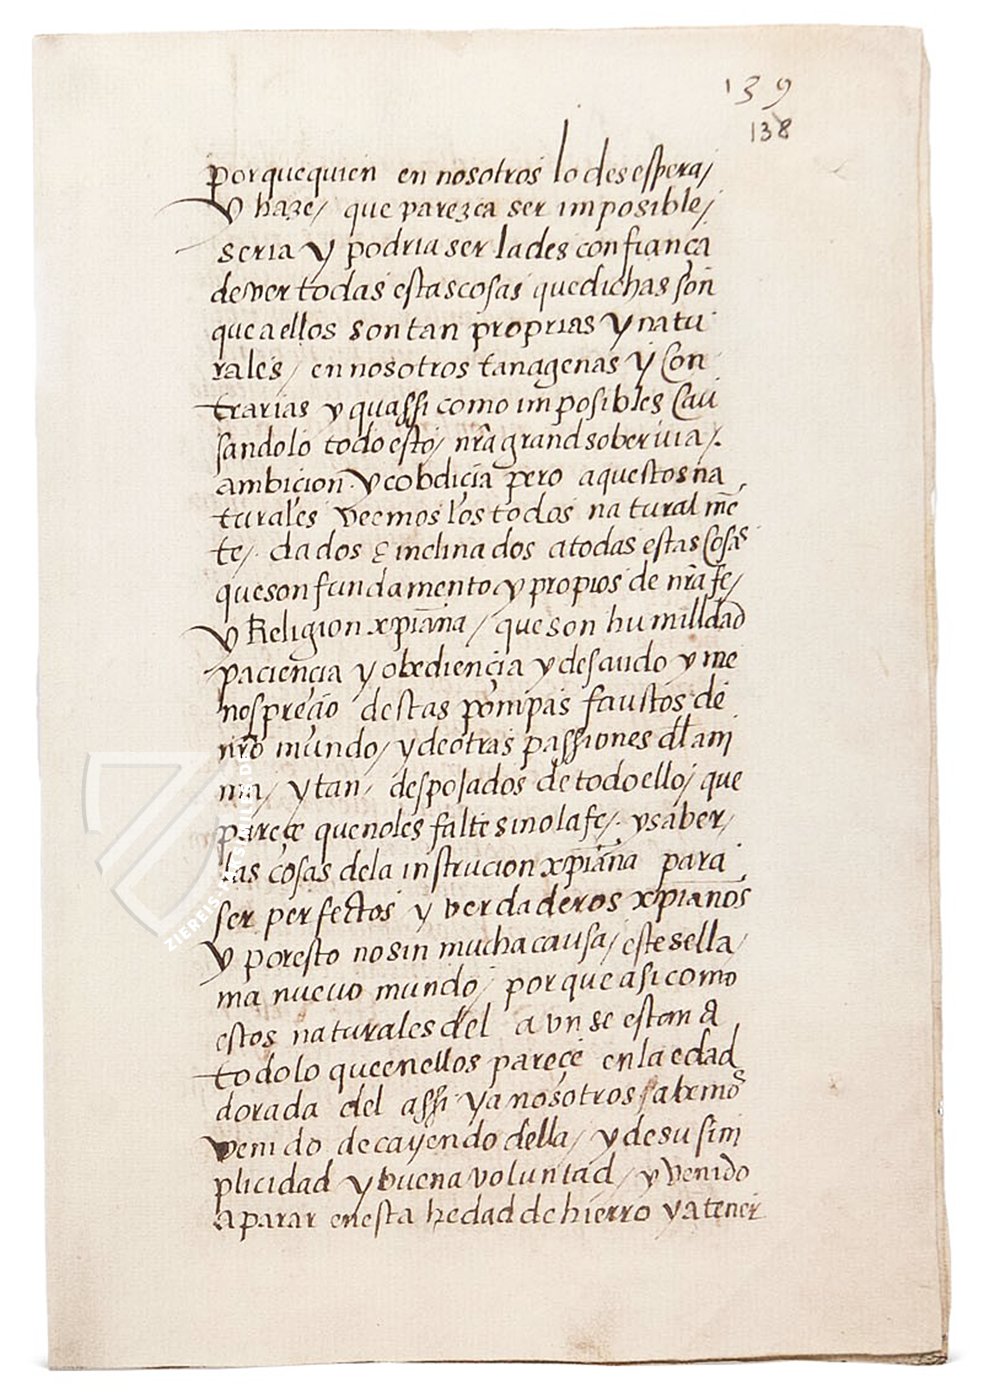 139
138
porque quien en nosotros lo desespera/
y haze/ que parezca ser imposible/
seria y podria ser la desconfiança
de ver todas estas cosas que dichas son
que a ellos son tan proprias y natu
rales/ en nosotros tan agenas y con
trarias y quassi como imposibles cau
sandolo todo esto/ nrã grand soberivia/.
ambicion y cobdiçia pero aquestos na
turales veemos los todos natural mẽ
te/. dados e inclinados a todas estas cosas
que son fundamento y propios de nrã fe/
y Religion xp̃iana/ que son humilldad
paciençia y obediençia y descuido y me
nospreçio destas pompas faustos de
nrõ mundo/ y de otras passiones dl ani
ma/ y tan despojados de todo ello/ que
pareçe que no les falte sino la fe/. y saber/
las cosas de la instrucion xp̃iana para
ser perfectos y verdaderos xp̃ianos
y por esto no sin mucha causa/ este se lla/
ma nuevo mundo/ porque asi como
estos naturales del aun se estan
todo lo que en ellos pareçe en la edad
dorada del assi ya nosotros sabemos
venido decayendo della/ y de su sim
plicidad y buena voluntad/ y venido
a parar en esta hedad de hierro y a tener
ZIEREIS FACSIMILES.DE